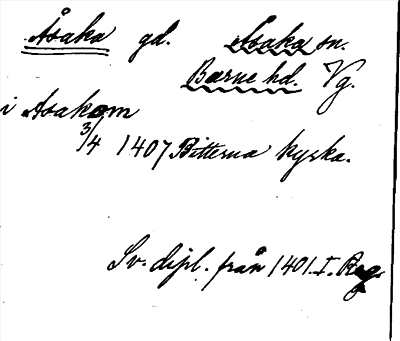 Åsaka gd. Åsaka sn.
Barne hd. Vg.
i Asakom
3/4 1407 Bitterna kyrka.
Sv. dipl. från 1401. I. Reg.